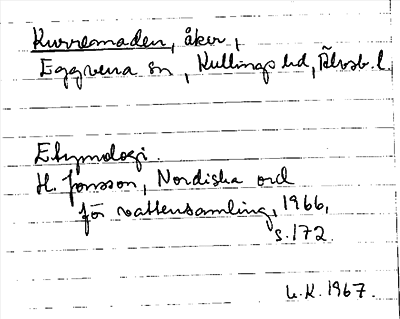 Kurremaden, åker,
Eggvena sn, Kullings hd, Älvsb. l.
Etymologi.
H. Jonsson, Nordiska ord
för vattensamling, 1966,
s. 172.
U.K. 1967.